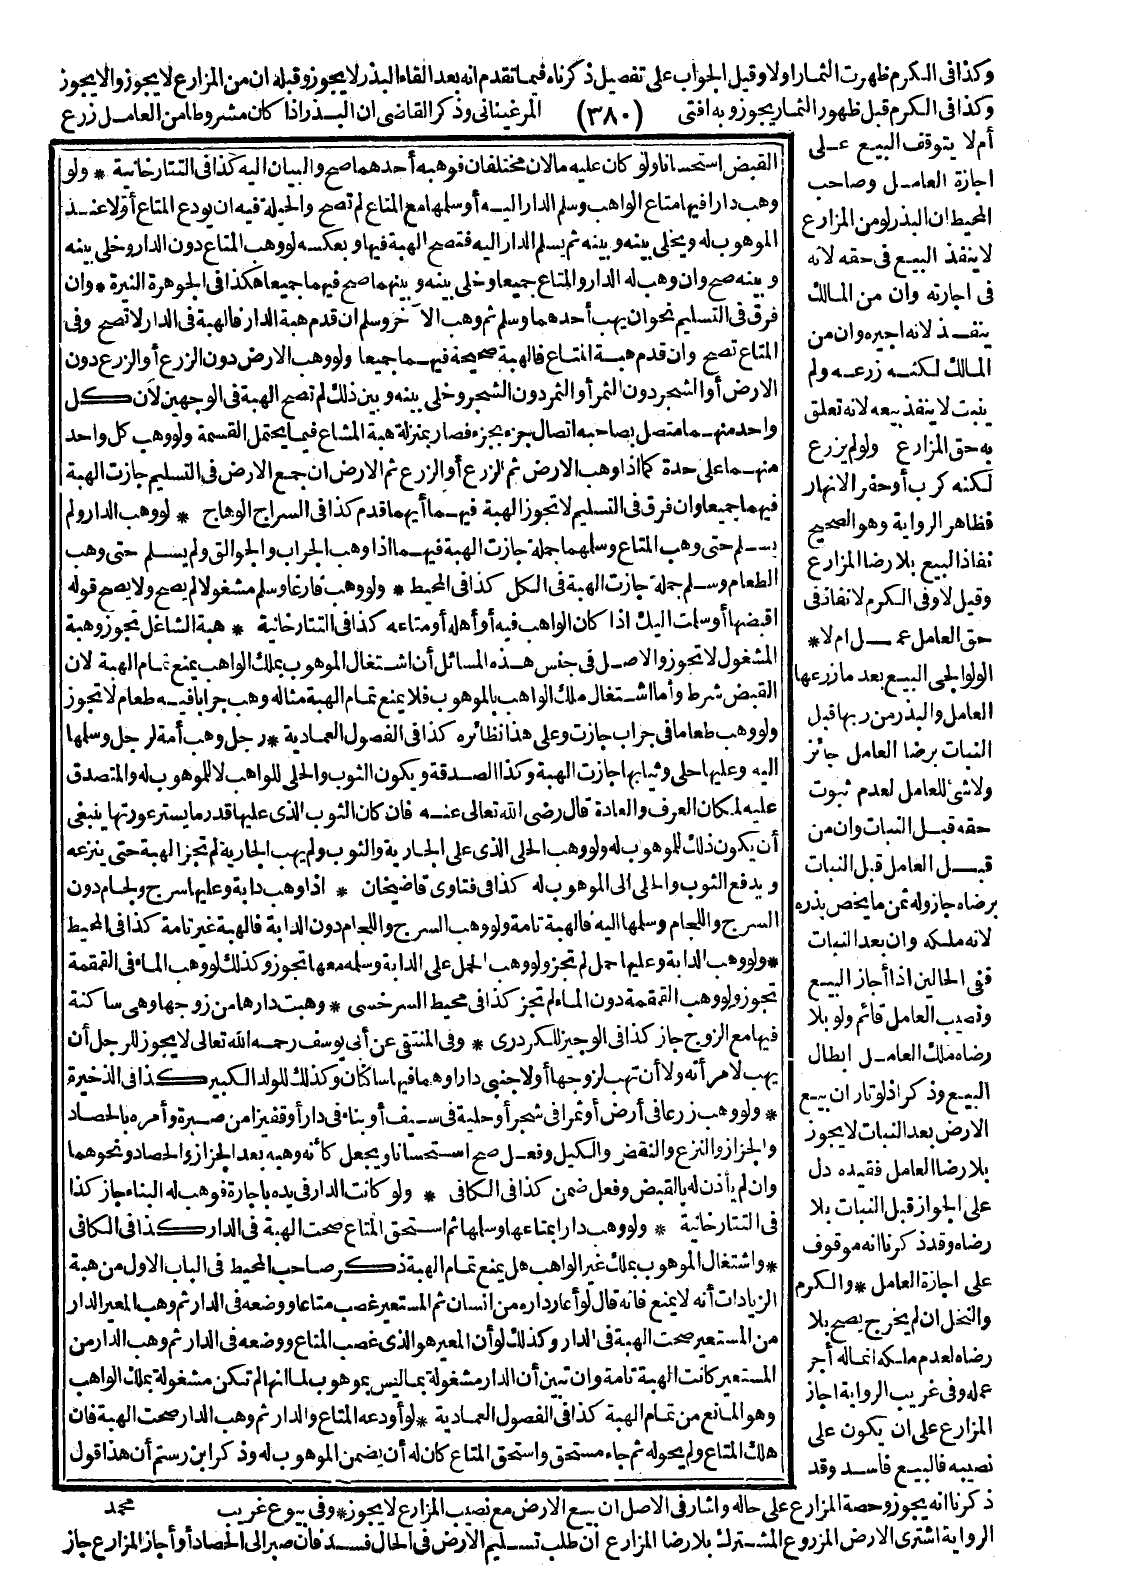 وكذا فى الكرم ظهرت الثمار اولا وقيل الجواب على تفصيل ذكرناه فيما تقدم انه بعد القاء البذر لا يجوز وقبله ان من المزارع لا يجوز والا يجوز
وكذا فى الكرم قبل ظهور الثمار يجوز وبه افتى (٣٨٠) المرغينانى وذكر القاضى ان البذر اذا كان مشروطا من العامل زرع
أم لا يتوقف البيع على
اجازة العامل وصاحب
المحيط ان البذر لو من المزارع
لا ينفذ البيع فى حقه لانه
فى اجارته وان من المالك
ينفذ لانه اجيره وان من
المالك لكنه زرعه ولم
ينبت لا ينفذ بيعه لانه تعلق
به حق المزارع ولو لم يزرع
لكنه كرب أو حفر الانهار
فظاهر الرواية وهو الصحيح
نفاذ البيع بلا رضا المزارع
وقيل لا وفى الكرم لا نفاذ فى
حق العامل عمل ام لا *
الولوالجى البيع بعد ما زرعها
العامل والبذر من ربها قبل
النبات برضا العامل جائز
ولا شئ للعامل لعدم ثبوت
حقه قبل النبات وان من
قبل العامل قبل النبات
برضاه جاز وله ثمن ما يخص بذره
لانه ملكه وان بعد النبات
ففى الحالين اذا أجاز البيع
ونصيب العامل قائم ولو بلا
رضاه ملك العامل ابطال
البيع وذكر اذلوتاران بيع
الارض بعد النبات لا يجوز
بلا رضا العامل فقيده دل
على الجواز قبل النبات بلا
رضاه وقد ذكرنا انه موقوف
على اجازة العامل * والكرم
والنخل ان لم يخرج يصح بلا
رضاه لعدم ملكه انما له أجر
عمله وفى غريب الرواية اجاز
المزارع على ان يكون على
نصيبه فالبيع فاسد وقد
القبض استحسانا ولو كان عليه مالان مختلفان فوهبه أحدهما صح والبيان اليه كذا فى التتارخانية * ولو
وهب دارا فيها متاع الواهب وسلم الدار اليه أو سلمها مع المتاع لم تصح والحيلة فيه ان يودع المتاع أولا عند
الموهوب له ويخلى بينه وبينه ثم يسلم الدار اليه فتصح الهبة فيها وبعكسه لو وهب المتاع دون الدار وخلى بينه
وبينه صح وان وهب له الدار والمتاع جميعا وخلى بينه وبينهما صح فيهما جميعا هكذا فى الجوهرة النيرة * وان
فرق فى التسليم نحو ان يهب أحدهما وسلم ثم وهب الآخر وسلم ان قدم هبة الدار فالهبة فى الدار لا تصح وفى
المتاع تصح وان قدم هبة المتاع فالهبة صحيحة فيهما جميعا ولو وهب الارض دون الزرع أو الزرع دون
الارض أو الشجر دون الثمر أو الثمر دون الشجر وخلى بينه وبين ذلك لم تصح الهبة فى الوجهين لأن كل
واحد منهما متصل بصاحبه اتصال جزء بجزء فصار بمنزلة هبة المشاع فيما يحتمل القسمة ولو وهب كل واحد
منهما على حدة كما اذا وهب الارض ثم الزرع أو الزرع ثم الارض ان جمع الارض فى التسليم جازت الهبة
فيهما جميعا وان فرق فى التسليم لا تجوز الهبة فيهما أيهما قدم كذا فى السراج الوهاج * لو وهب الدار ولم
يسلم حتى وهب المتاع وسلمهما جملة جازت الهبة فيهما اذا وهب الجراب والجوالق ولم يسلم حتى وهب
الطعام وسلم جملة جازت الهبة فى الكل كذا فى المحيط * ولو وهب فارغا وسلم مشغولا لم يصح ولا يصح قوله
اقبضها أو سلمت اليك اذا كان الواهب فيه أو أهله أو متاعه كذا فى التتارخانية * هبة الشاغل تجوز وهبة
المشغول لا تجوز والاصل فى جنس هذه المسائل أن اشتغال الموهوب بملك الواهب يمنع تمام الهبة لان
القبض شرط وأما اشتغال ملك الواهب بالموهوب فلا يمنع تمام الهبة مثاله وهب جرابا فيه طعام لا تجوز
ولو وهب طعاما فى جراب جازت وعلى هذا نظائره كذا فى الفصول العمادية * رجل وهب أمة لرجل وسلمها
اليه وعليها حلى وثيابها جازت الهبة وكذا الصدقة ويكون الثوب والحلى للواهب لا للموهوب له والمتصدق
عليه لمكان العرف والعادة قال رضى الله تعالى عنه فان كان الثوب الذى عليها قدر ما يستر عورتها ينبغى
أن يكون ذلك للموهوب له ولو وهب الحلى الذى على الجارية والثوب ولم يهب الجارية لم تجز الهبة حتى ينزعه
ويدفع الثوب والحلى الى الموهوب له كذا فى فتاوى قاضيخان * اذا وهب دابة وعليها سرج ولجام دون
السرج واللجام وسلمها اليه فالهبة تامة ولو وهب السرج واللجام دون الدابة فالهبة غير تامة كذا فى المحيط
* ولو وهب الدابة وعليها حمل لم تجز ولو وهب الحمل على الدابة وسلمه معها تجوز وكذلك لو وهب الماء فى القمقمة
تجوز ولو وهب القمقمة دون الماء لم تجز كذا فى محيط السرخسى * وهبت دارها من زوجها وهى ساكنة
فيها مع الزوج جاز كذا فى الوجيز للكردرى * وفى المنتقى عن أبى يوسف رحمه الله تعالى لا يجوز للرجل أن
يهب لامرأته ولا أن تهب لزوجها أو لاجنبى دارا وهما فيها ساكنان وكذلك للولد الكبير كذا فى الذخيرة
* ولو وهب زرعا فى أرض أو ثمرا فى شجر أو حلية فى سيف أو بناء فى دار أو قفيزا من صبرة وأمره بالحصاد
والجزاز والنزع والنقض والكيل وفعل صح استحسانا ويجعل كأنه وهبه بعد الجزاز والحصاد ونحوهما
وان لم يأذن له بالقبض وفعل ضمن كذا فى الكافى * ولو كانت الدار فى يده باجارة فوهب له البناء جاز كذا
فى التتارخانية * ولو وهب دارا بمتاعها وسلمها ثم استحق المتاع صحت الهبة فى الدار كذا فى الكافى
* واشتغال الموهوب بملك غير الواهب هل يمنع تمام الهبة ذكر صاحب المحيط فى الباب الاول من هبة
الزيادات أنه لا يمنع فانه قال لو أعار داره من انسان ثم المستعير غصب متاعا ووضعه فى الدار ثم وهب المعير الدار
من المستعير صحت الهبة فى الدار وكذلك لو أن المعير هو الذى غصب المتاع ووضعه فى الدار ثم وهب الدار من
المستعير كانت الهبة تامة وان تبين أن الدار مشغولة بما ليس بموهوب لما انها لم تكن مشغولة بملك الواهب
وهو المانع من تمام الهبة كذا فى الفصول العمادية * لو أودعه المتاع والدار ثم وهب الدار صحت الهبة فان
هلك المتاع ولم يحوله ثم جاء مستحق واستحق المتاع كان له أن يضمن الموهوب له وذكر ابن رستم أن هذا قول
محمد
ذكرنا انه يجوز وحصة المزارع على حاله واشار فى الاصل ان بيع الارض مع نصيب المزارع لا يجوز * وفى بيوع غريب
الرواية اشترى الارض المزروع المشترك بلا رضا المزارع ان طلب تسليم الارض فى الحال فسد فان صبر الى الحصاد أو أجاز المزارع جاز